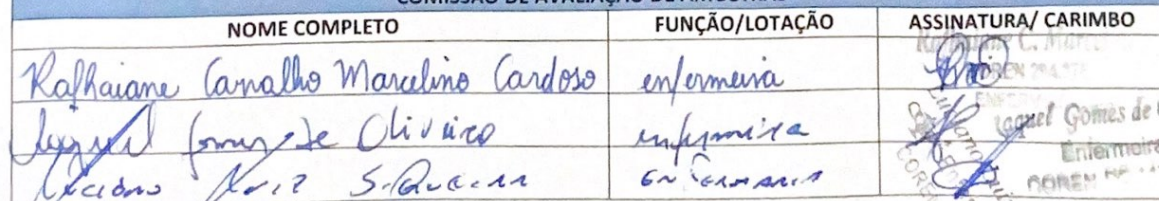 COMISSÃO DE AVALIAÇÃO DE AMOSTRAS
NOME COMPLETO FUNÇÃO/LOTAÇÃO ASSINATURA/ CARIMBO
Rafhaiane Carvalho Marcelino Cardoso enfermeira Rafhaiane C. COREN
Raquel Gomes de Oliveira enfermeira Raquel Gomes de
Enfermeira
Luciano Siqueira COREN